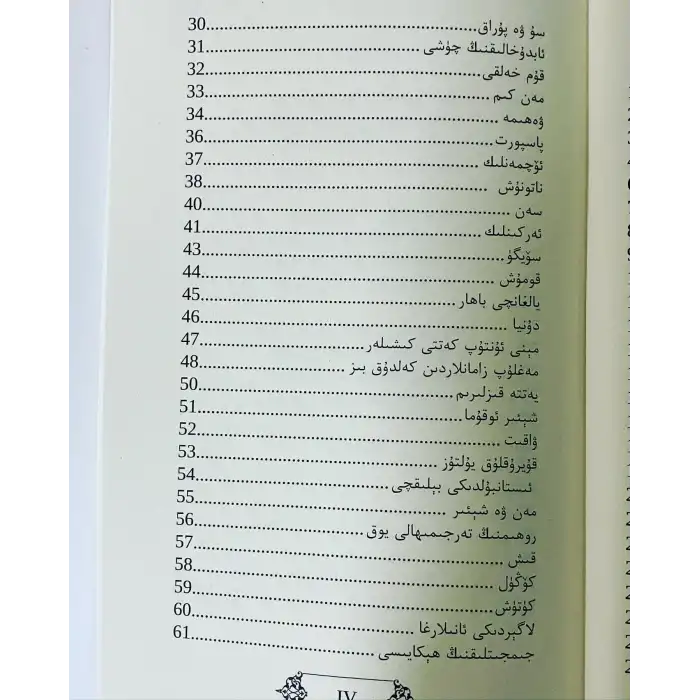 سۇ ۋە پۇراق.....30
ئابدۇخالىقنىڭ چۈشى.....31
قۇم خەلقى.....32
مەن كىم.....33
ۋەھىمە.....34
پاسپورت.....36
ئۆچمەنلىك.....37
ناتونۇش.....38
سەن.....40
ئەركىنلىك.....41
سۆيگۈ.....43
قومۇش.....44
يالغانچى باھار.....45
دۇنيا.....46
مېنى ئۇنتۇپ كەتتى كىشىلەر.....47
مەغلۇپ زامانلاردىن كەلدۇق بىز.....48
يەتتە قىزلىرىم.....50
شېئىر ئوقۇما.....51
ۋاقىت.....52
قۇيرۇقلۇق يۇلتۇز.....53
ئىستانبۇلدىكى بېلىقچى.....54
مەن ۋە شېئىر.....55
روھىمنىڭ تەرجىمىھالى يوق.....56
قىش.....57
كۆڭۈل.....58
كۈتۈش.....59
لاگېردىكى ئانىلارغا.....60
جىمجىتلىقنىڭ ھېكايىسى.....61
IV